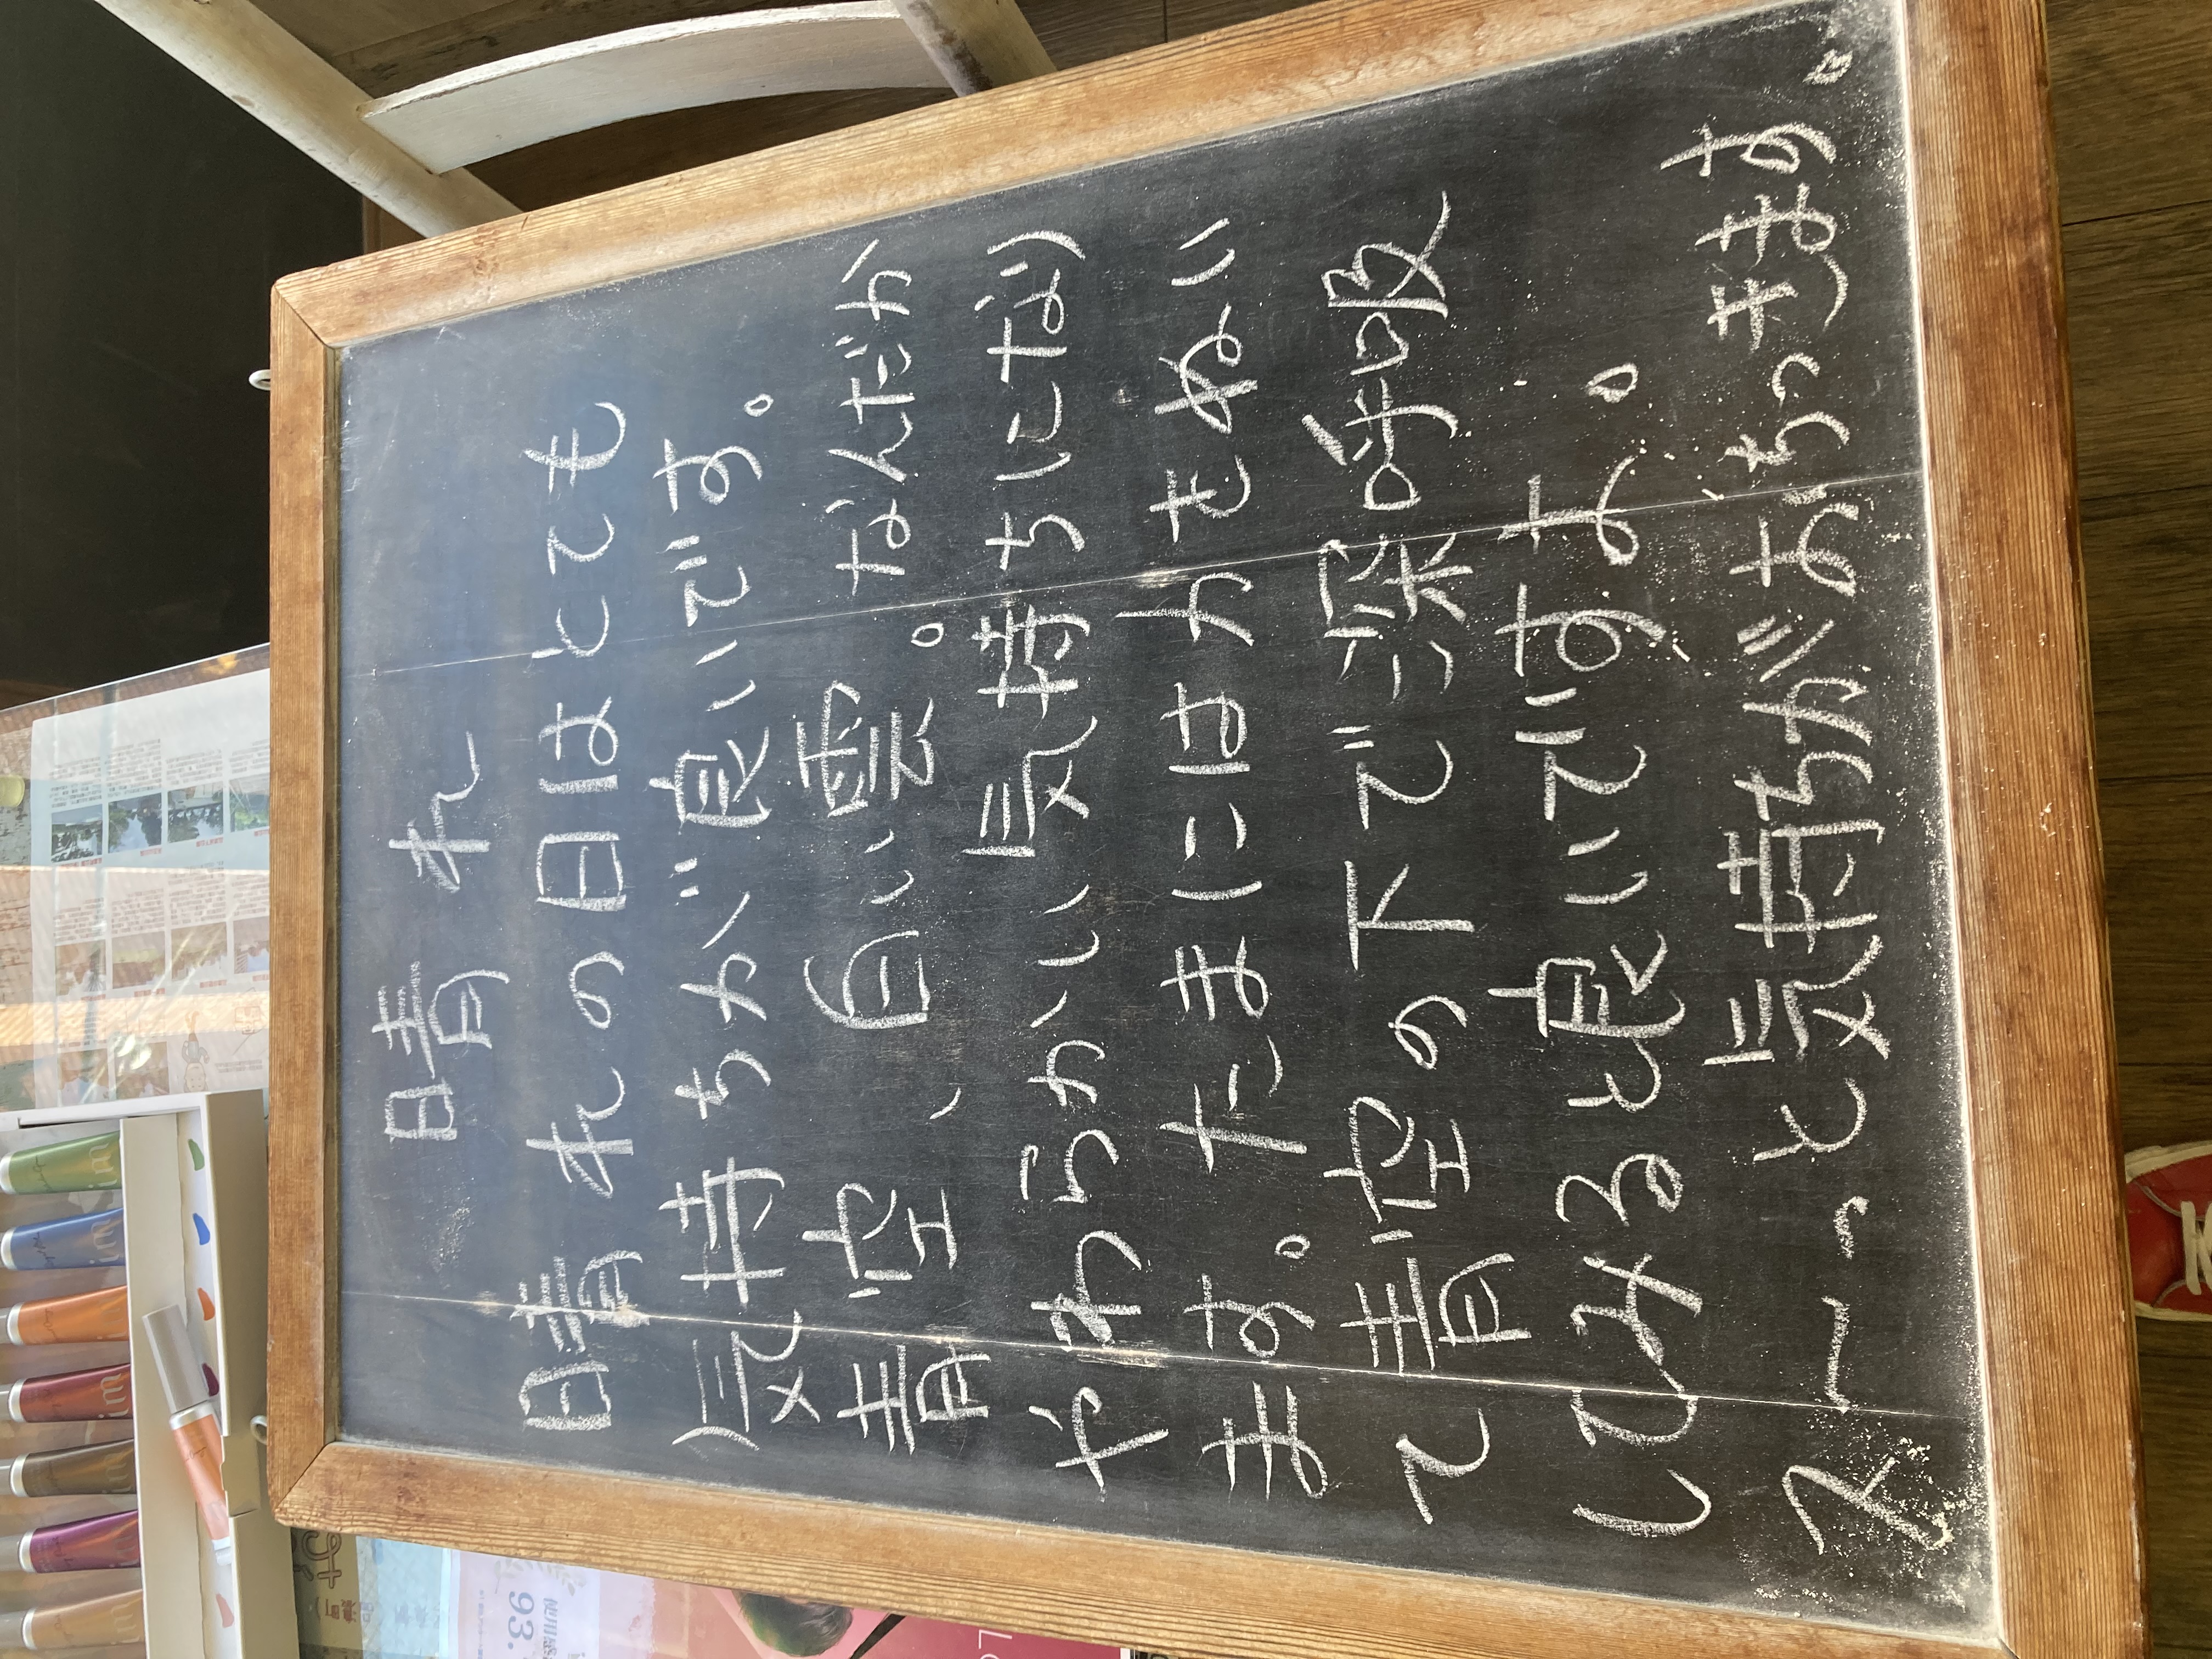 晴れ
晴れの日はとても
気持ちが良いです。
青空、白い雲。なんだか
やわらかい気持ちになり
ます。たまには力をぬい
て青空の下で深呼吸
してみると良いですよ。
ス〜っと気持ちがおちつきます。
93.